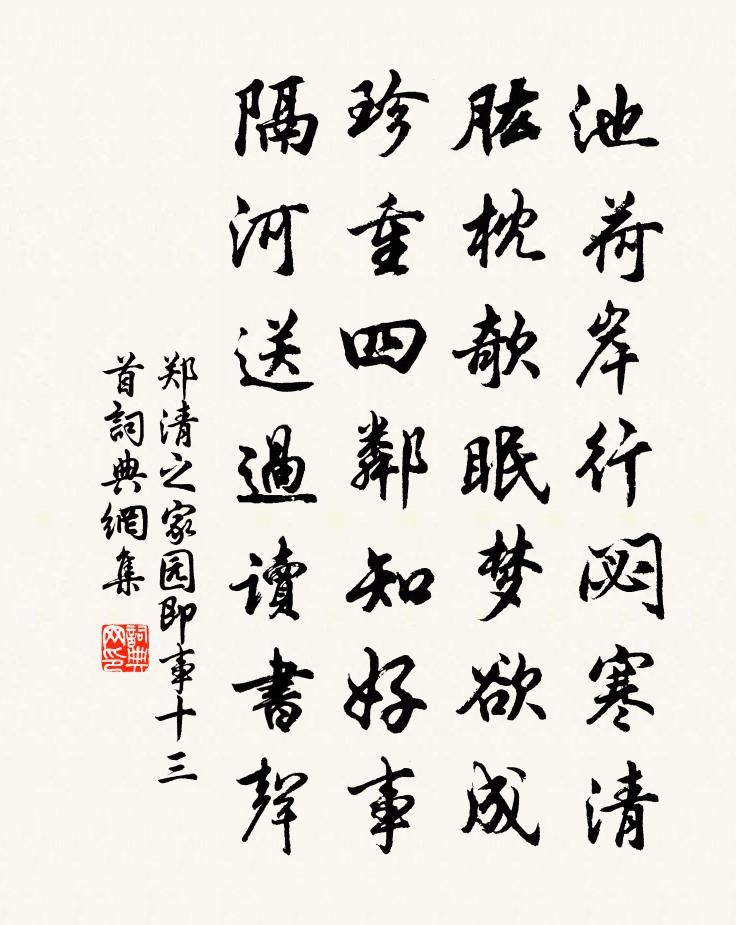 池荷岸行閟寒清
肱枕欹眠梦欲成
珍重四鄰知好事
隔河送過讀書聲
郑清之家园即事十三
首詞典網集
詞典
网印